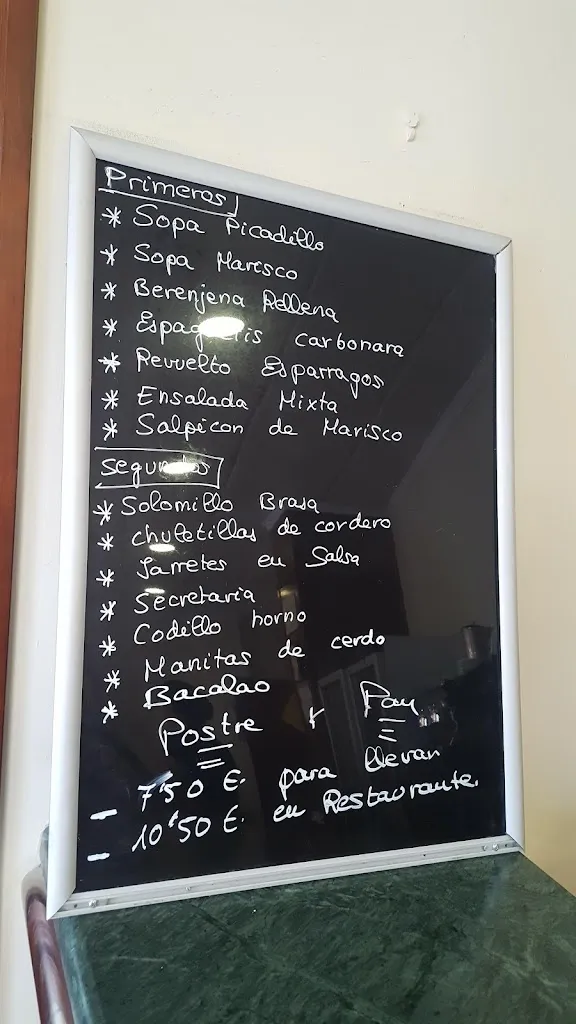 Primeros
* Sopa Picadillo
* Sopa Marisco
* Berenjena Rellena
* Espaguetis carbonara
* Revuelto Esparragos
* Ensalada Mixta
* Salpicon de Marisco
Segundos
* Solomillo Brasa
* chuletillas de cordero
* Jarretes en Salsa
* Secretaria
* Codillo horno
* Manitas de cerdo
* Bacalao
Postre y Pan
- 7'50 €. para llevar
- 10'50 €. en Restaurante.